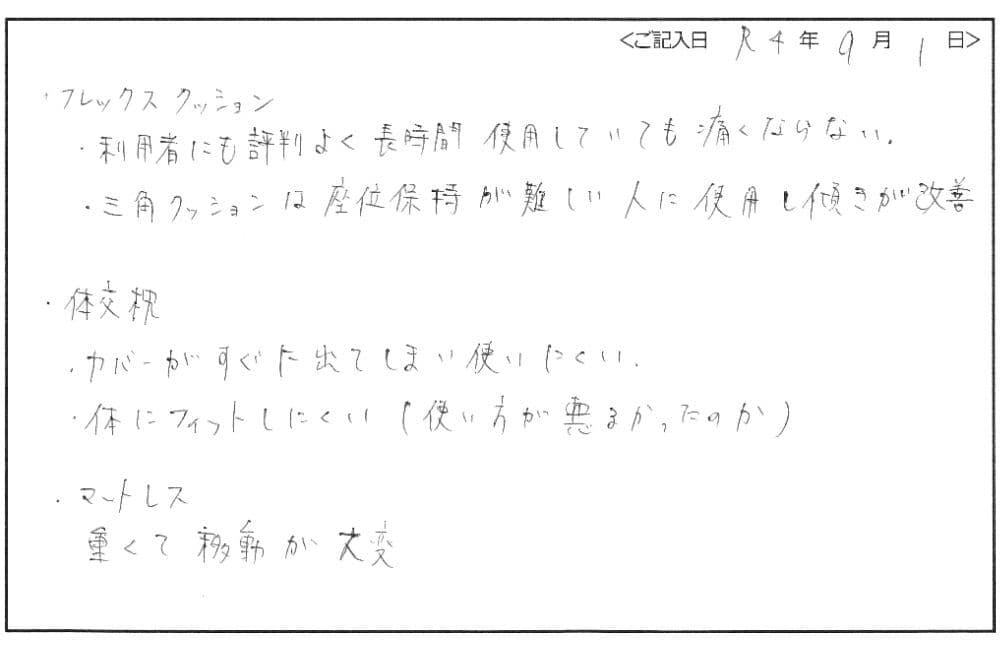 <ご記入日 R4年9月1日>
・フレックスクッション
・利用者にも評判よく長時間使用していても痛くならない.
・三角クッションは座位保持が難しい人に使用し傾きが改善
・体交枕
・カバーがすぐに出てしまい使いにくい.
・体にフィットしにくい(使い方が悪るかったのか)
・マットレス
重くて移動が大変